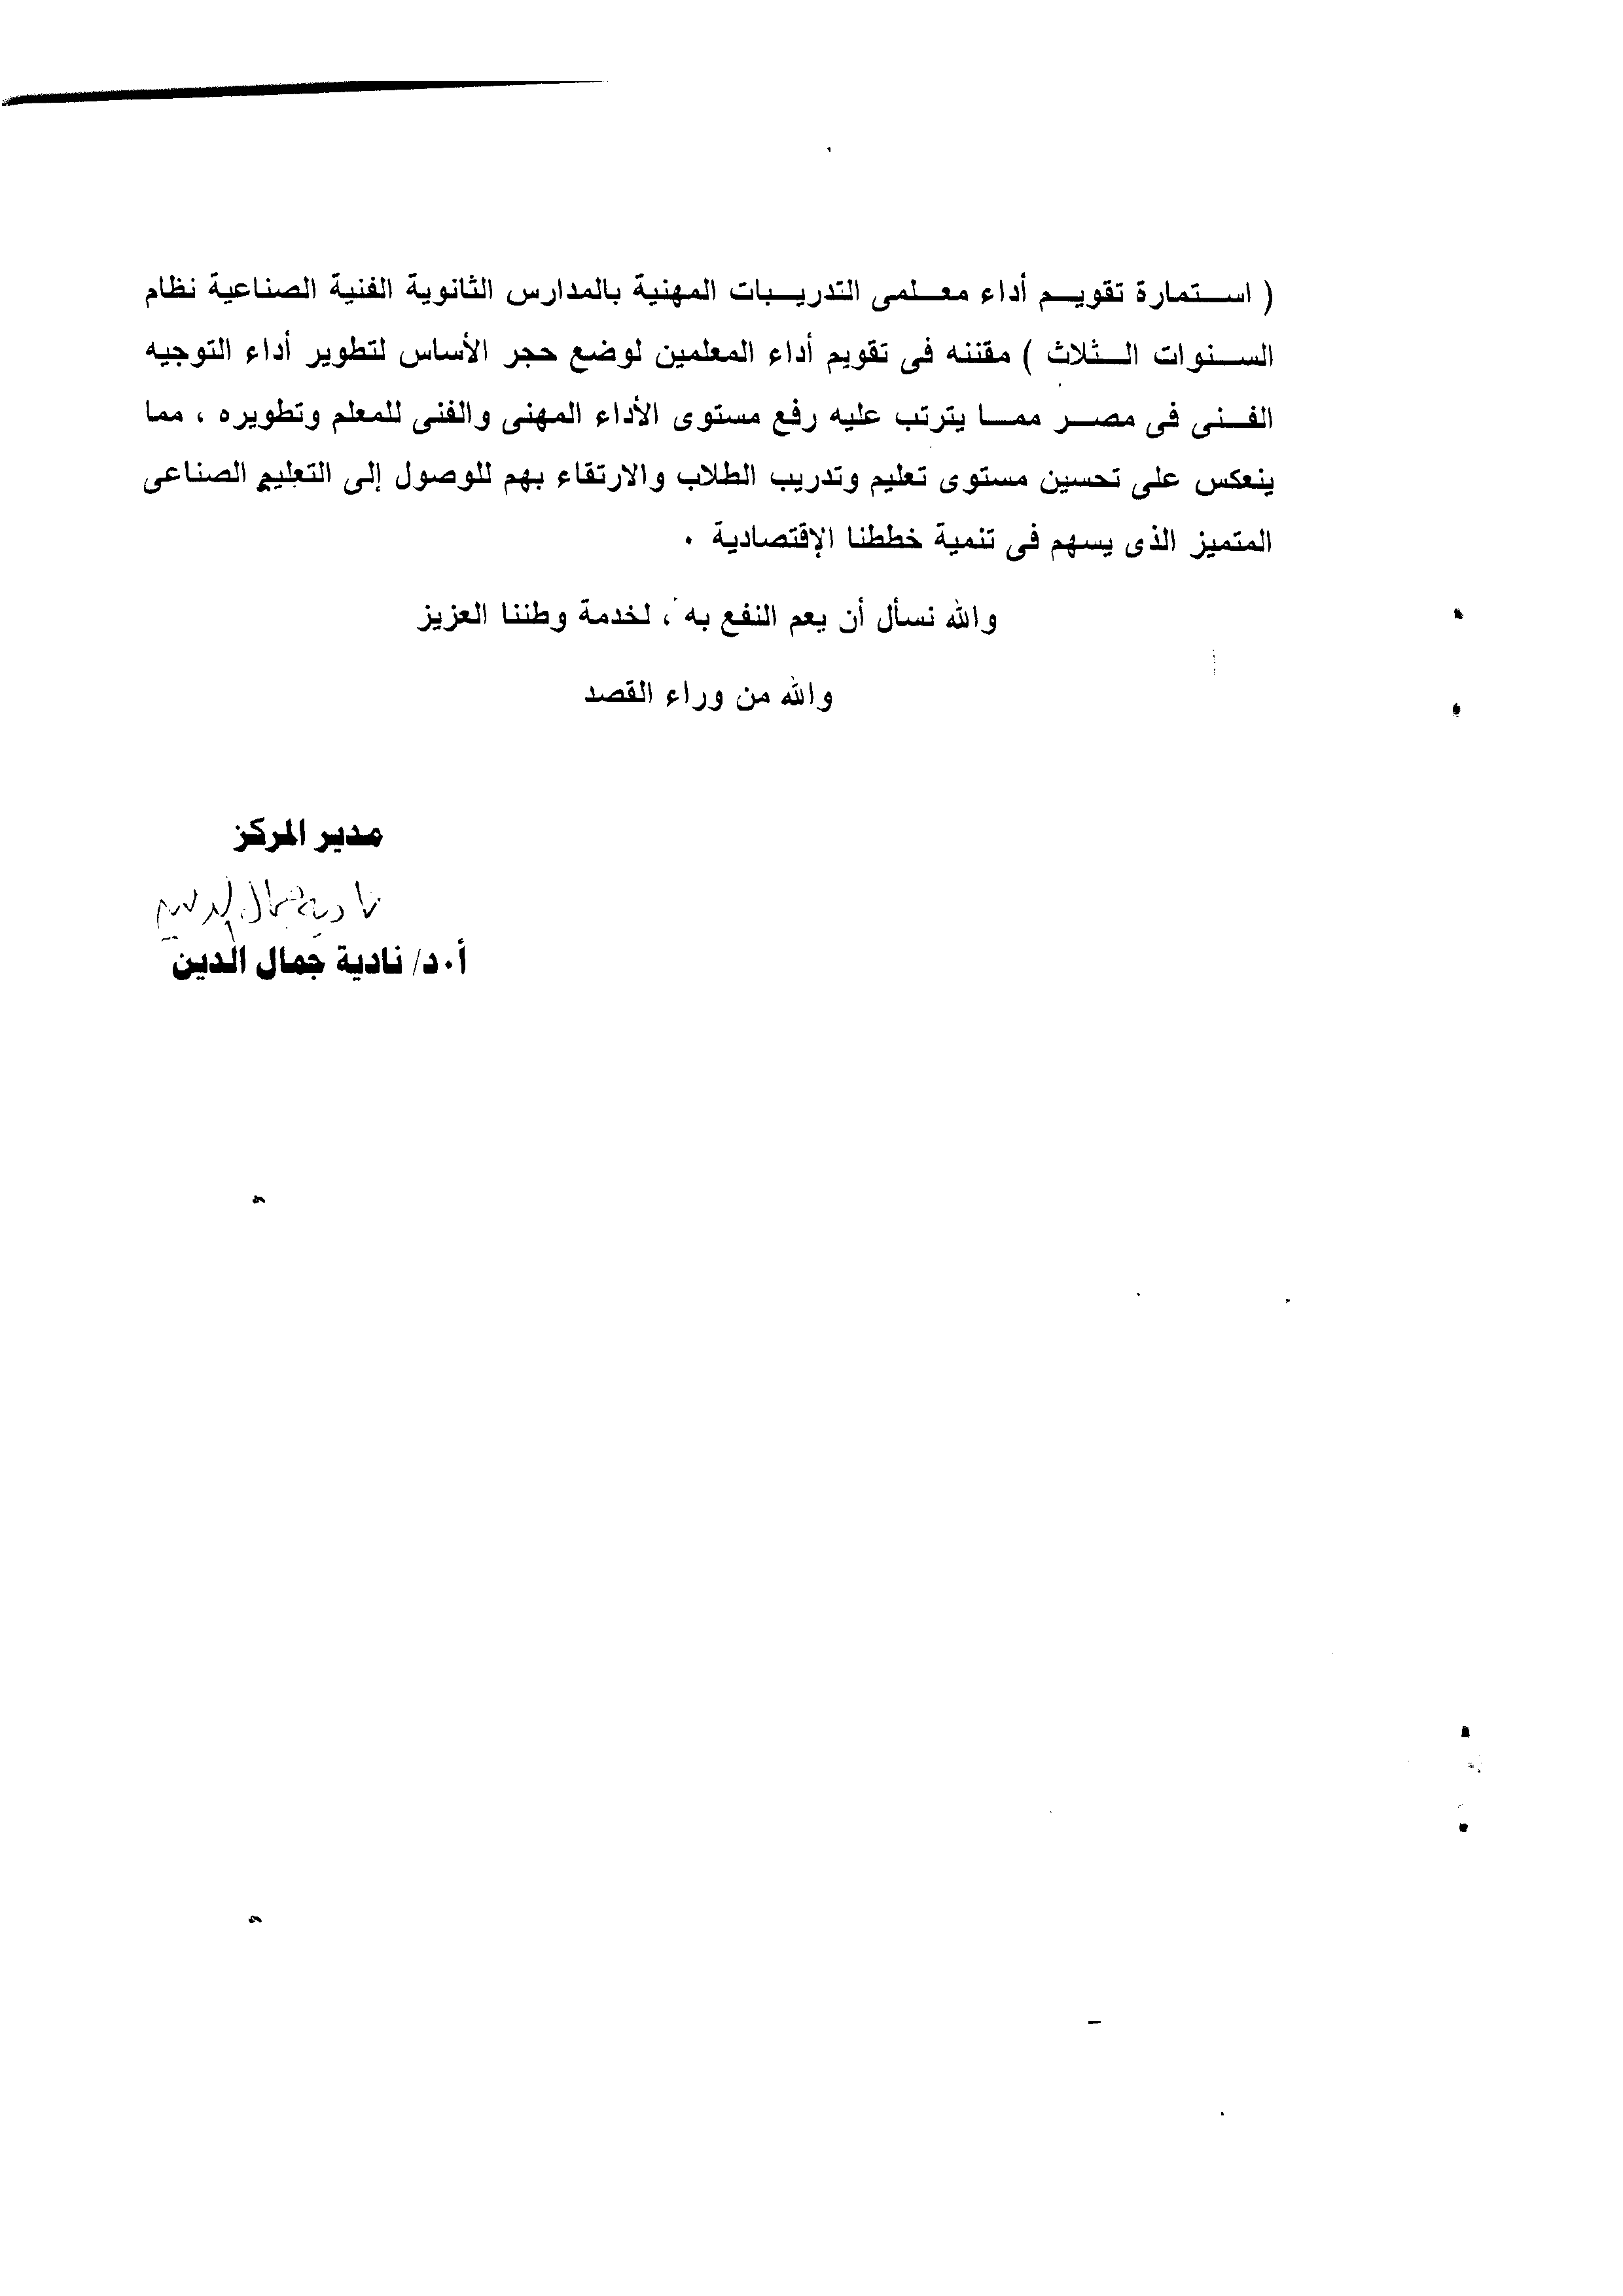 ( استمارة تقويم أداء معلمى التدريبات المهنية بالمدارس الثانوية الفنية الصناعية نظام
السنوات الثلاث ) مقننه فى تقويم أداء المعلمين لوضع حجر الأساس لتطوير أداء التوجيه
الفنى فى مصر مما يترتب عليه رفع مستوى الأداء المهنى والفنى للمعلم وتطويره ، مما
ينعكس على تحسين مستوى تعليم وتدريب الطلاب والارتقاء بهم للوصول إلى التعليم الصناعى
المتميز الذى يسهم فى تنمية خططنا الإقتصادية ٠
والله نسأل أن يعم النفع به ، لخدمة وطننا العزيز
والله من وراء القصد
مدير المركز
نادية جمال الدين
أ٠د/ نادية جمال الدين